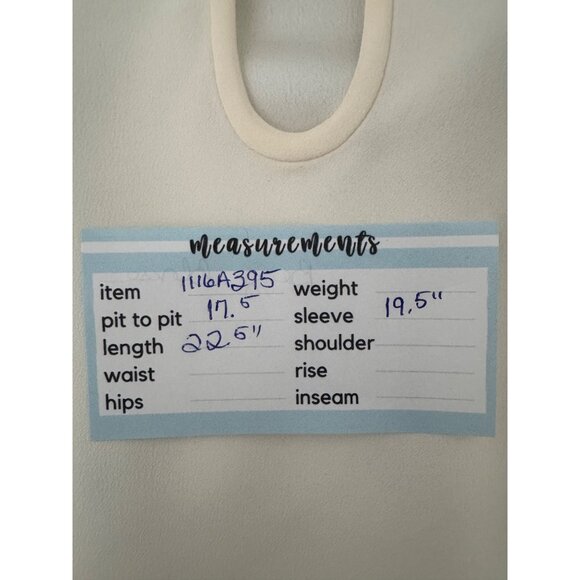 measurements
item 1116A395 weight
pit to pit 17.5 sleeve 19.5"
length 22.5" shoulder
waist rise
hips inseam